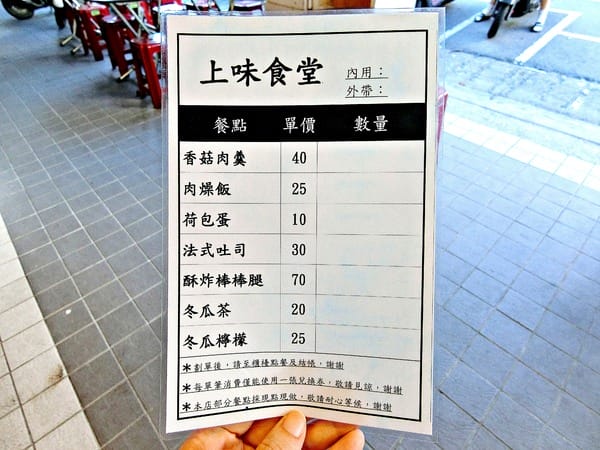 上味食堂
內用：
外帶：
餐點 單價 數量
香菇肉羹 40
肉燥飯 25
荷包蛋 10
法式吐司 30
酥炸棒棒腿 70
冬瓜茶 20
冬瓜檸檬 25
＊劃單後，請至櫃檯點餐及結帳，謝謝
＊每單筆消費僅能使用一張兌換券，敬請見諒，謝謝
＊本店部分餐點採現點現做，敬請耐心等候，謝謝